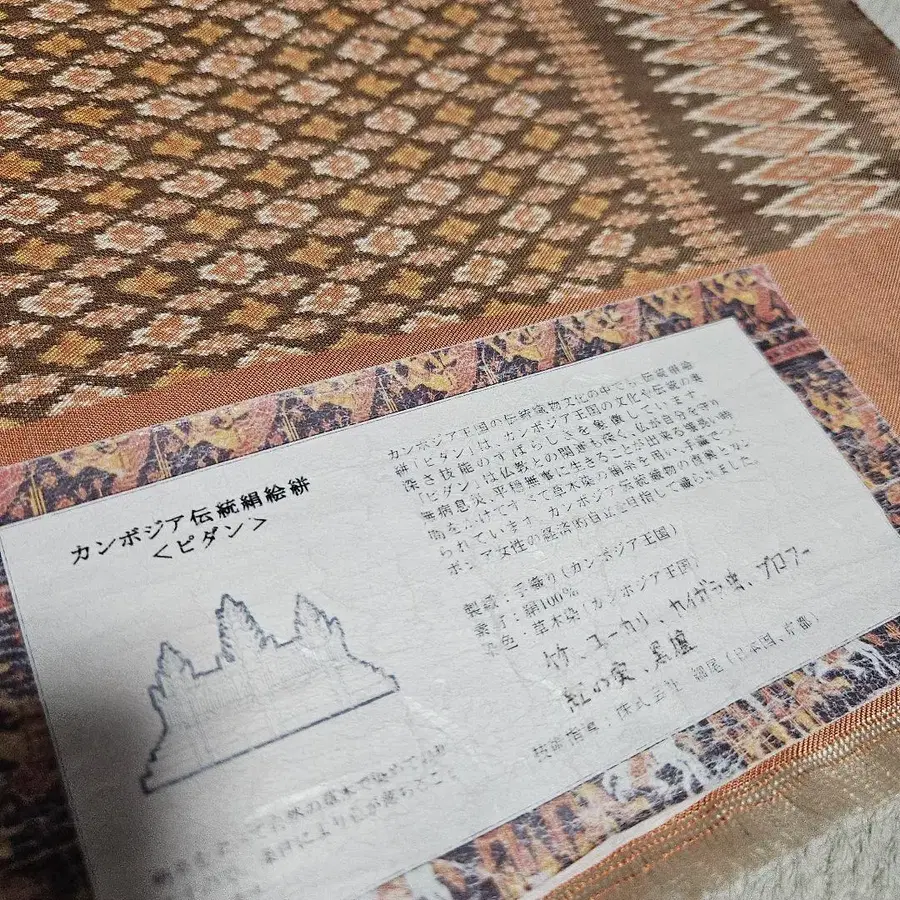 カンボジア伝統絹絵絣
＜ピダン＞
カンボジア王国の伝統織物文化の中でも 伝統絹絵
絣「ピダン」は、カンボジア王国の文化や伝統の奥
深さ技能のすばらしさを象徴しています。
「ピダン」は仏教との関連も深く、仏が自分を守り
無病息災、平穏無事に生きることが出来る
すべて草木染の絹糸を用い、手織で
られています。カンボジア伝統織物の復興とカン
ボジア女性の経済的自立を目指して織られました。
製織：手織り(カンボジア王国)
素材：絹100%
染色：草木染(カンボジア王国)
竹、ユーカリ、カイガラ虫、プロフー
紅の実、黒檀
技術指導：株式会社 細尾(日本国、京都)